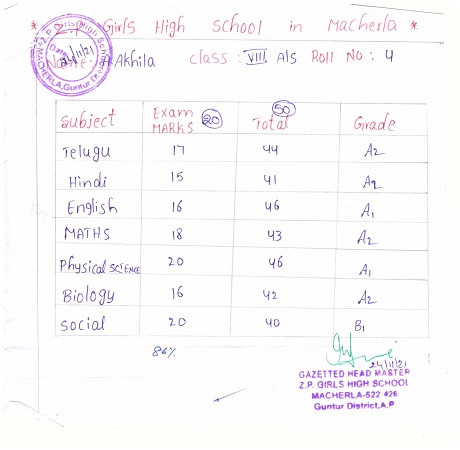 * Z.P Girls High School in Macherla *
Name: Akhila class: VIII A/s Roll No: 4
Z.P. Girls High School
MACHERLA, Guntur District
Date
24/11/21
Subject Exam MARKS 20 Total 50 Grade
Telugu 17 44 A2
Hindi 15 41 A2
English 16 46 A1
MATHS 18 43 A2
Physical SCIENCE 20 46 A1
Biology 16 42 A2
Social 20 40 B1
86%
24/11/21
GAZETTED HEAD MASTER
Z.P. GIRLS HIGH SCHOOL
MACHERLA-522 426
Guntur District, A.P